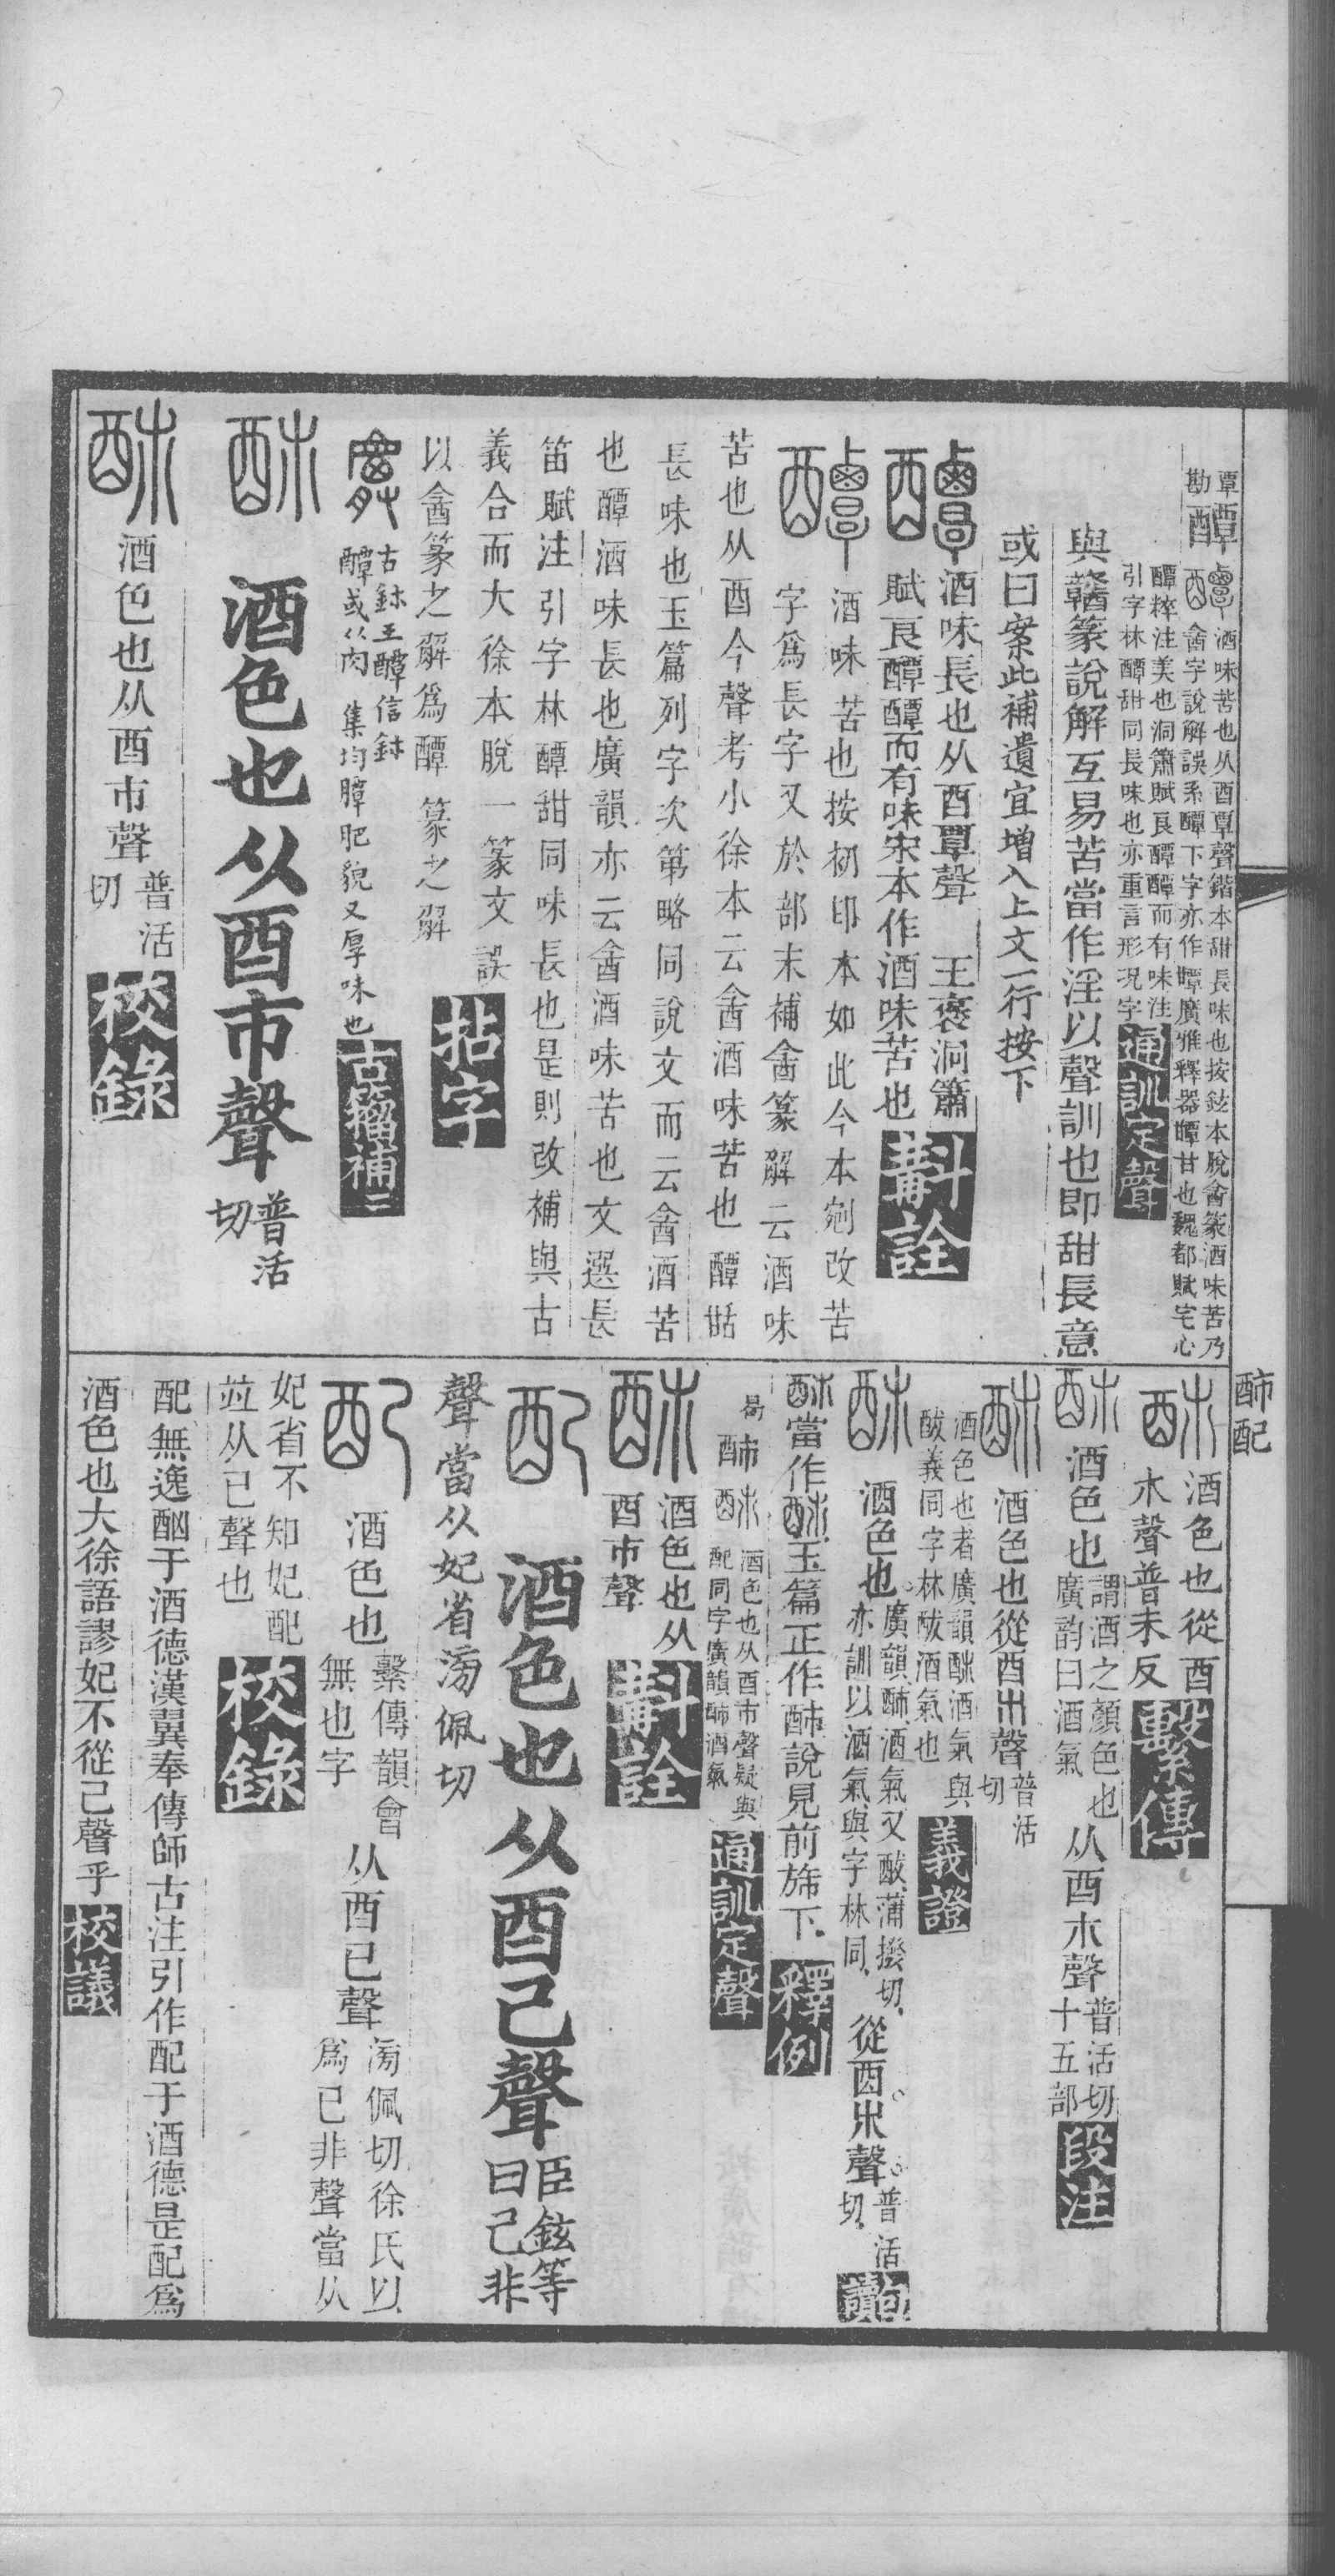 覃勘
醰
酒味苦也从酉覃聲鍇本甜長味也按鉉本脫酓篆酒味苦乃
酓字說解誤系醰下字亦作䤗廣雅釋器䤗甘也魏都賦宅心
醰粹注美也洞簫賦良醰醰而有味注
引字林醰甜同長味也亦重言形況字
通訓定聲
與䤗篆說解互易苦當作淫以聲訓也即甜長意
或曰案此補遺宜增入上文一行按下
酒味長也从酉覃聲 王褒洞簫
賦良醰醰而有味宋本作酒味苦也
斠詮
酒味苦也按初印本如此今本剜改苦
字爲長字又於部末補酓篆解云酒味
苦也从酉今聲考小徐本云酓酒味苦也醰甛
長味也玉篇列字次第略同說文而云酓酒苦
也醰酒味長也廣韻亦云酓酒味苦也文選長
笛賦注引字林醰甜同味長也是則改補與古
義合而大徐本脫一篆文誤
以酓篆之解爲醰篆之解
拈字
古鉥王醰信鉥
醰或从肉 集均䐺肥貌又厚味也
古籀補二
酒色也从酉巿聲
普活
切
酒色也从酉巿聲
普活
切
校錄
酒色也從酉
木聲普末反
繫傳
酒色也
謂酒之顏色也
廣韵曰酒氣
从酉木聲
普活切
十五部
段注
酒色也從酉出聲
普活
切
酒色也者廣韻酥酒氣與
酦義同字林酦酒氣也
義證
酒色也
廣韻䣪酒氣又酦蒲撥切
亦訓以酒氣與字林同
從酉𣎵聲
普活
切
句讀
當作玉篇正作䣪說見前旆下
釋例
䣪
酒色也从酉巿聲疑與
配同字廣韻䣪酒氣
通訓定聲
酒色也从
酉巿聲
斠詮
酒色也从酉己聲
臣鉉等
曰己非
聲當从妃省滂佩切
酒色也
繫傳韻會
無也字
从酉已聲
滂佩切徐氏以
爲已非聲當从
妃省不知妃配
竝从已聲也
校錄
配無逸酗于酒德漢翼奉傳師古注引作配于酒德是配爲
酒色也大徐語謬妃不從己聲乎
校議
䣪配